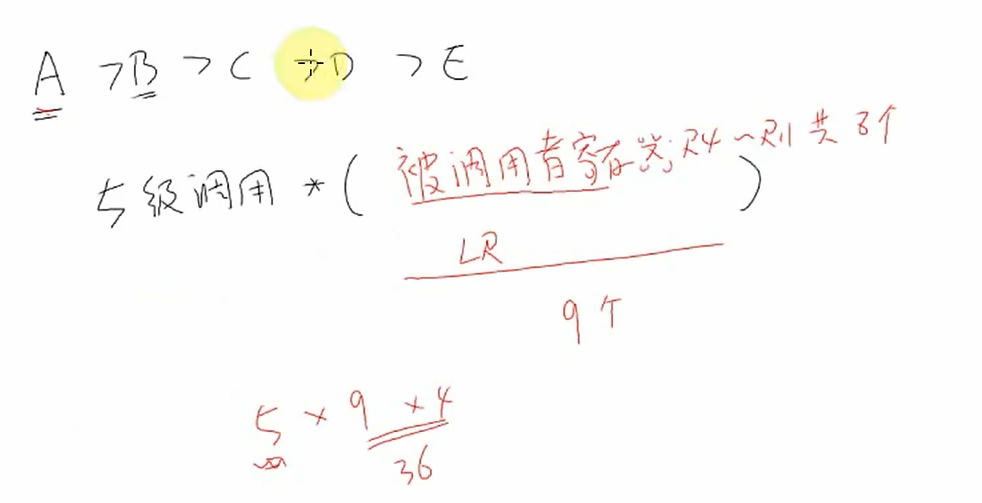 A → B → C → D → E
5级调用 * ( 被调用者寄存器; R4~R11 共 8个 )
LR
9个
5 × 9 × 4
36